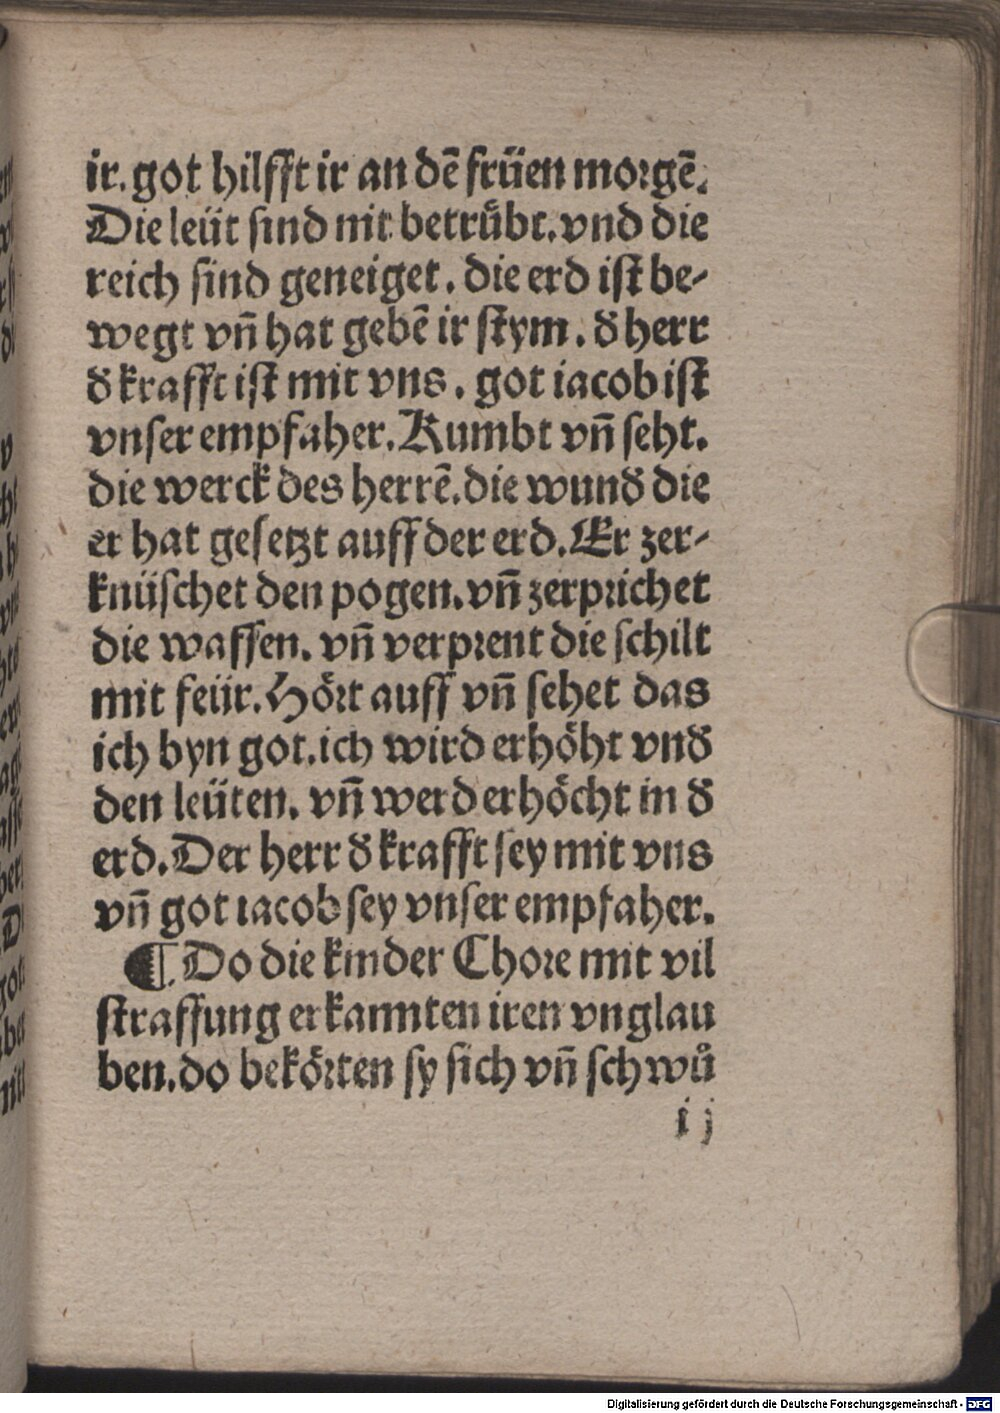 ir. got hilfft ir an dē früen morgē.
Die leüt sind nit betrůbt. vnd die
reich sind geneiget. die erd ist be-
wegt vñ hat gebē ir stym. d̕ herr
d̕ krafft ist mit vns. got iacob ist
vnser empfaher. Kumbt vñ seht.
die werck des herrē. die wund̕ die
er hat gesetzt auff der erd. Er zer-
knüschet den pogen. vñ zerprichet
die waffen. vñ verprent die schilt
mit feür. Hört auff vñ sehet das
ich byn got. ich wird erhöht vnd̕
den leüten. vñ werd erhöcht in d̕
erd. Der herr d̕ krafft sey mit vns
vñ got iacob sey vnser empfaher.
¶ Do die kinder Chore mit vil
straffung erkannten iren vnglau
ben. do bekörten sy sich vñ schwů
i j
Digitalisierung gefördert durch die Deutsche Forschungsgemeinschaft - DFG